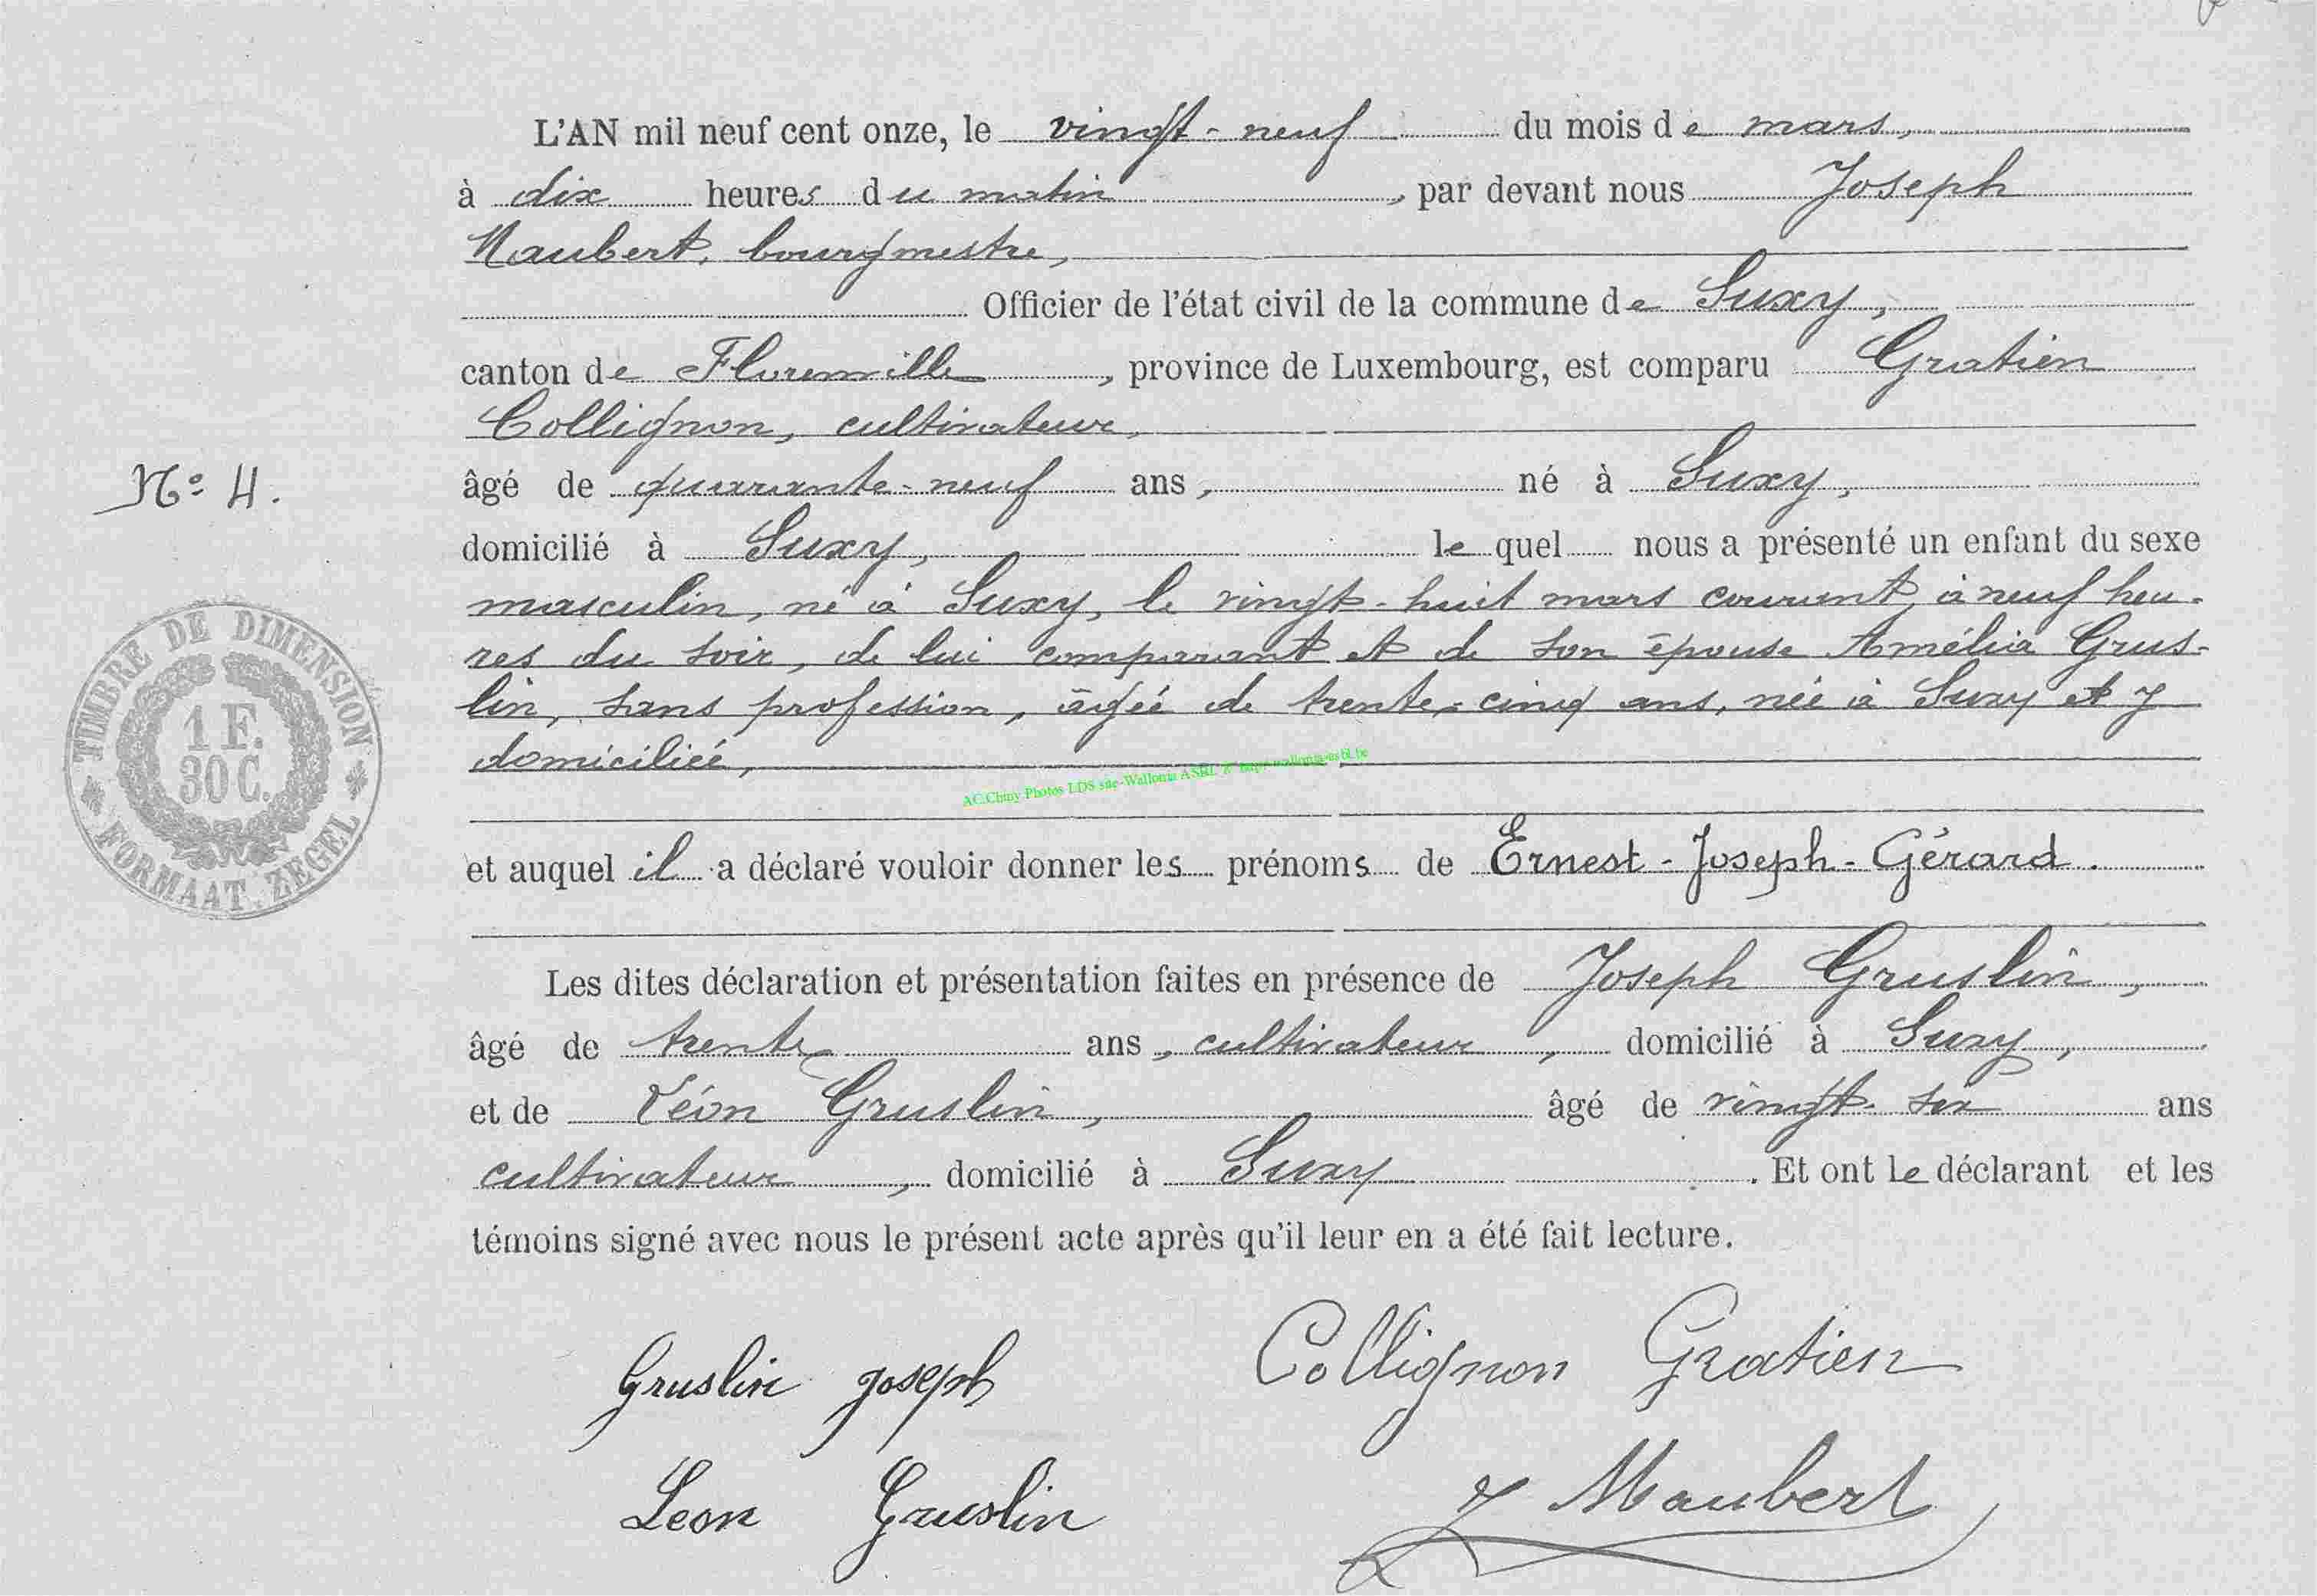 L'AN mil neuf cent onze, le vingt-neuf du mois de mars,
à dix heures du matin, par devant nous Joseph
Maubert, bourgmestre,
Officier de l'état civil de la commune de Suxy,
canton de Florenville, province de Luxembourg, est comparu Gratien
Collignon, cultivateur,
âgé de quarante-neuf ans, né à Suxy,
domicilié à Suxy, le quel nous a présenté un enfant du sexe
masculin, né à Suxy, le vingt-huit mars courant, à neuf heu-
res du soir, de lui comparant et de son épouse Amélia Grus-
lin, sans profession, âgée de trente-cinq ans, née à Suxy et y
domiciliée,
et auquel il a déclaré vouloir donner les prénoms de Ernest-Joseph-Gérard.
Les dites déclaration et présentation faites en présence de Joseph Gruslin,
âgé de trente ans, cultivateur, domicilié à Suxy,
et de Léon Gruslin, âgé de vingt-six ans
cultivateur, domicilié à Suxy. Et ont le déclarant et les
témoins signé avec nous le présent acte après qu'il leur en a été fait lecture.
Gruslin joseph Collignon Gratien
Leon Gruslin J Maubert
N° 4.
TIMBRE DE DIMENSION
1 F.
30 C.
FORMAAT ZEGEL
AC.Chiny Photos LDS site-Wallonia ASBL